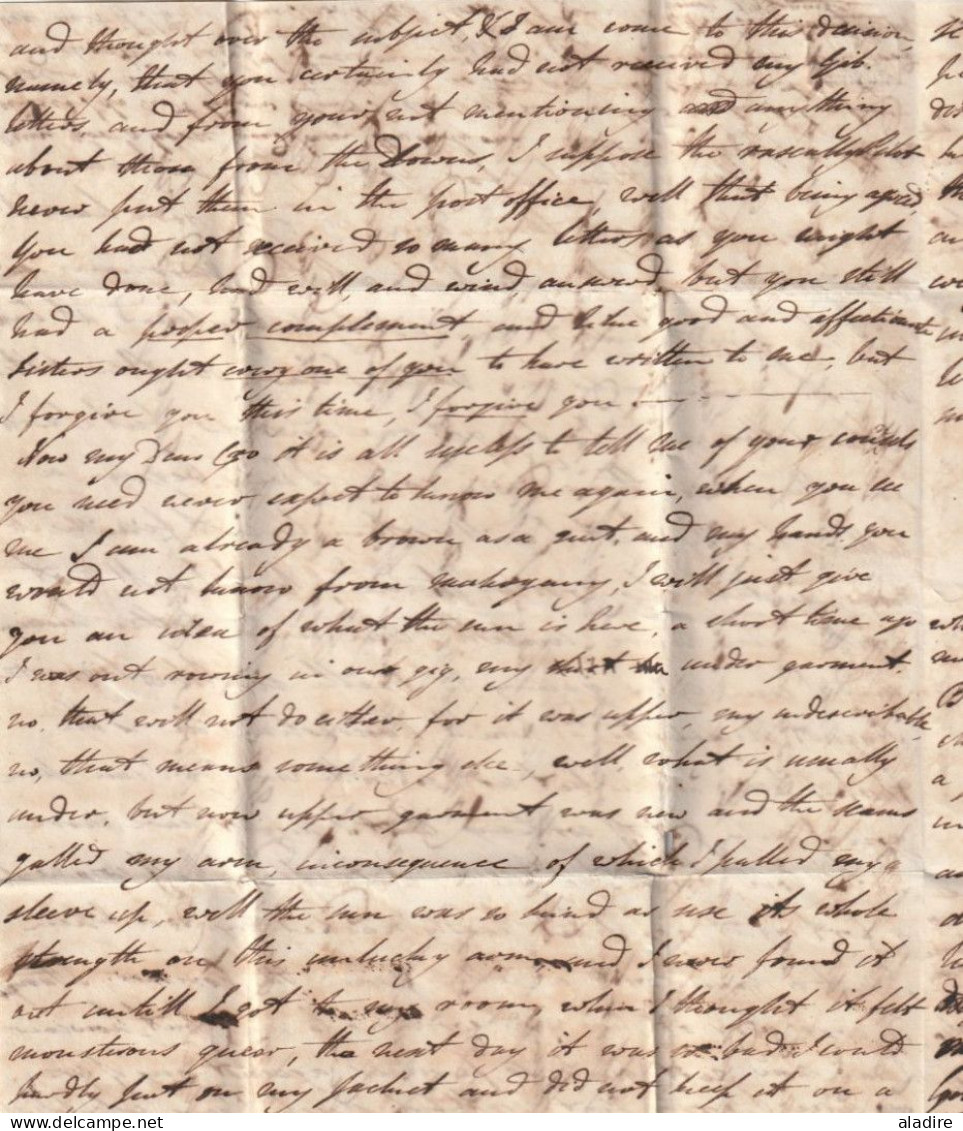 and thought over the subject, & I am come to this decision,
namely, that you certainly had not received my Gib.
letters, and from your not mentioning anything
about them from the Downs, I suppose the rascally Pilot
never put them in the post office, well that being agreed,
you had not received so many letters as you might
have done, had will, and wind, answered, but you still
had a proper complement, and like good and affectionate
sisters ought every one of you to have written to me, but
I forgive you this time, I forgive you
Now my Dear Geo it is all useless to tell me of your
you need never expect to know me again, when you see
me I am already a brown as a nut, and my hands you
would not know from mahogany, I will just give
you an idea of what the sun is here, a short time ago
I was out rowing in our gig, my under garment,
no, that will not do either, for it was upper, my indescribable
no, that means something else, well, what is usually
under, but now upper garment was new and the seams
galled my arm, inconsequence of which I pulled my
sleeve up, well the sun was so kind as use its whole
strength on this unlucky arm and I never found it
out untill I got to my room, when I thought it felt
monstrous queer, the next day it was so bad I could
hardly put on my jacket and did not keep it on a
aladire